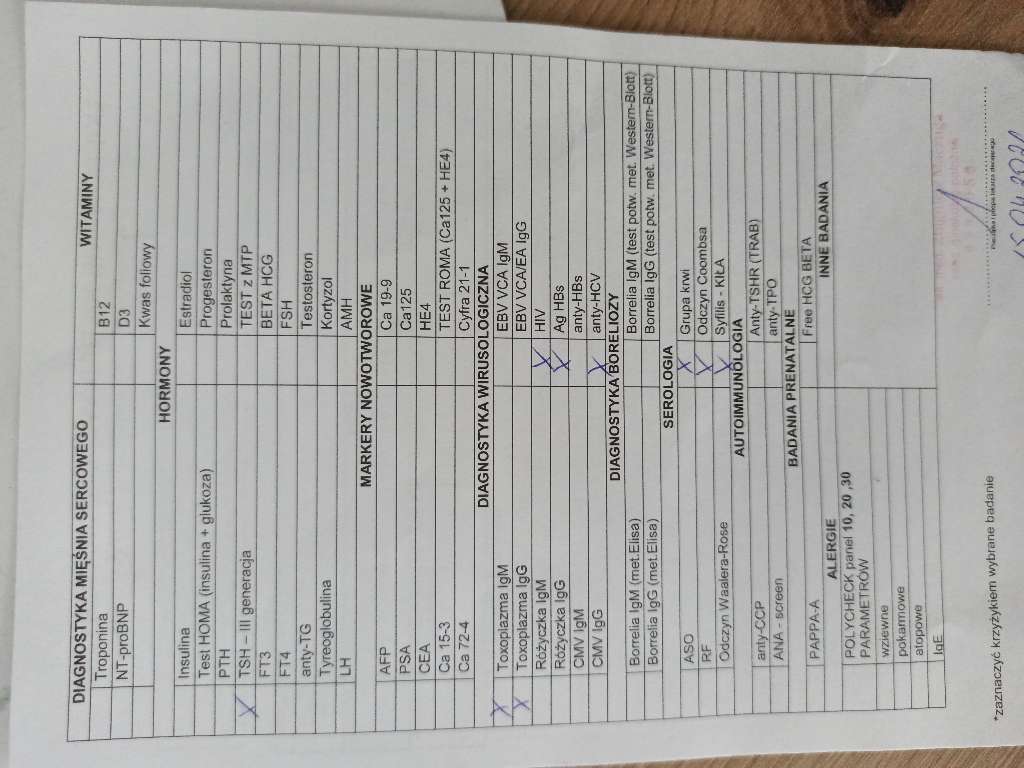 DIAGNOSTYKA MIĘŚNIA SERCOWEGO WITAMINY
Troponina B12
NT-proBNP D3
Kwas foliowy
HORMONY
Insulina Estradiol
Test HOMA (insulina + glukoza) Progesteron
PTH Prolaktyna
X TSH – III generacja TEST z MTP
FT3 BETA HCG
FT4 FSH
anty-TG Testosteron
Tyreoglobulina Kortyzol
LH AMH
MARKERY NOWOTWOROWE
AFP Ca 19-9
PSA Ca125
CEA HE4
Ca 15-3 TEST ROMA (Ca125 + HE4)
Ca 72-4 Cyfra 21-1
DIAGNOSTYKA WIRUSOLOGICZNA
X Toxoplazma IgM EBV VCA IgM
X Toxoplazma IgG EBV VCA/EA IgG
Różyczka IgM X HIV
Różyczka IgG X Ag HBs
CMV IgM anty-HBs
CMV IgG X anty-HCV
DIAGNOSTYKA BORELIOZY
Borrelia IgM (met.Elisa) Borrelia IgM (test potw. met. Western-Blott)
Borrelia IgG (met.Elisa) Borrelia IgG (test potw. met. Western-Blott)
SEROLOGIA
ASO X Grupa krwi
RF X Odczyn Coombsa
Odczyn Waalera-Rose X Syfilis - KIŁA
AUTOIMMUNOLOGIA
anty-CCP Anty-TSHR (TRAB)
ANA - screen anty-TPO
BADANIA PRENATALNE
PAPPA-A Free HCG BETA
ALERGIE INNE BADANIA
POLYCHECK panel 10, 20 ,30
PARAMETRÓW
wziewne
pokarmowe
atopowe
IgE
*zaznaczyć krzyżykiem wybrane badanie